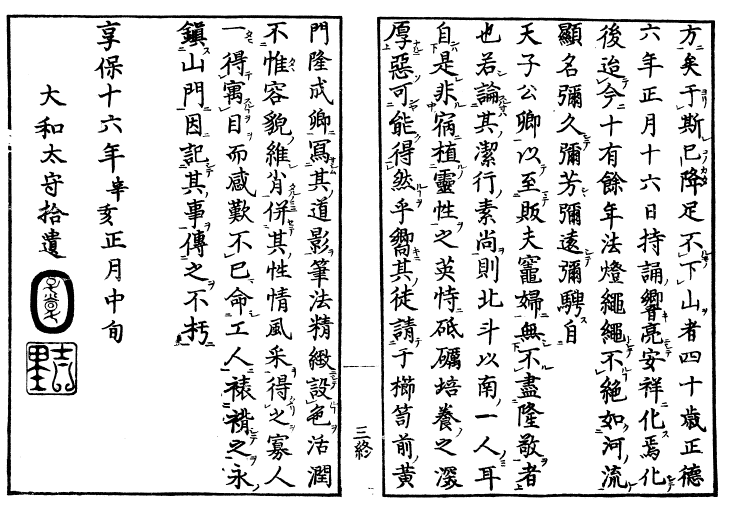 方矣于斯已降足不下山者四十歳正德
六年正月十六日持誦響亮安祥化焉化
後迨今十有餘年法燈繩繩不絕如河流
顯名彌久彌芳彌遠彌騁自
天子公卿以至販夫竈婦無不盡隆敬者
也若論其潔行素尚則北斗以南一人耳
自是非宿植靈性之英恃砥礪培養之深
厚惡可能得然乎嚮其徒請于櫛笥前黃
三終
門隆成卿寫其道影筆法精緻設色活潤
不惟容貌維肖併其性情風采得之寡人
一得寓目而感歎不已命工人裱褙之永
鎮山門因記其事傳之不朽
享保十六年辛亥正月中旬
大和太守拾遺